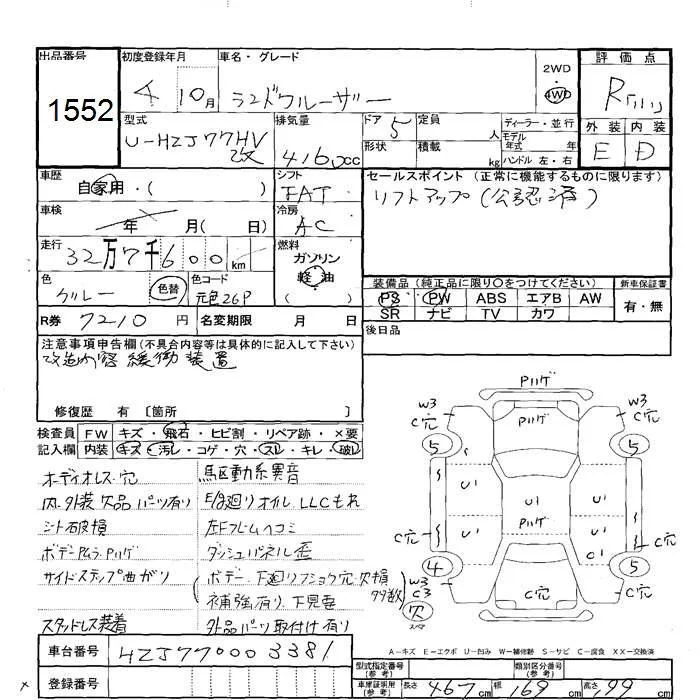 出品番号 初度登録年月 車名・グレード 評価点
1552 4年10月 ランドクルーザー 2WD 4WD R
型式 排気量 ドア 5 定員 人 ディーラー・並行 外装 内装
U-HZJ77HV改 4160cc 形状 積載 kg モデル年式 年式 ハンドル 左・右 E D
車歴 シフト セールスポイント (正常に機能するものに限ります)
自家用・( ) FAT リフトアップ(公認済)
車検 年 月( 日) 冷房 AC
走行 32万7千600km 燃料 ガソリン 軽油 ( )
装備品(純正品に限り○をつけてください) 新車保証書
色 グレー 色替 色コード 元色26P PS PW ABS エアB AW 有・無
SR ナビ TV カワ
R券 7210円 名変期限 月 日 後日品
注意事項申告欄(不具合内容等は具体的に記入して下さい)
改造内容 緩衝装置
修復歴 有 〔箇所 〕
検査員 FW キズ・飛石・ヒビ割・リペア跡・×要
記入欄 内装 キズ・汚レ・コゲ・穴・スレ・キレ・破レ
オーディオレス・穴 駆動系異音
内・外装欠品パーツ有り E/g廻りオイル、LLCもれ
シート破損 左Fフレームヘコミ
ボデーPムラ、Pハゲ ダッシュパネル歪
サイドステップ曲がり ボデー、下廻りフショク穴、欠損多数
補強有り、下見要
スタッドレス装着 外品パーツ取付け有り
Pハゲ
W3 C穴 Pハゲ W3 C穴
5 5
U1 U1 U1
Pハゲ
C穴 C1 C穴
4 5
W3 C3 C穴
穴 スペア
A-キズ E-エクボ U-凹み W-補修跡 S-サビ C-腐食 XX-交換済
車台番号 HZJ77-0003381 型式指定番号(参考) 類別区分番号(参考)
登録番号 車庫証明用(参考) 長さ 467cm 幅 169cm 高さ 199cm